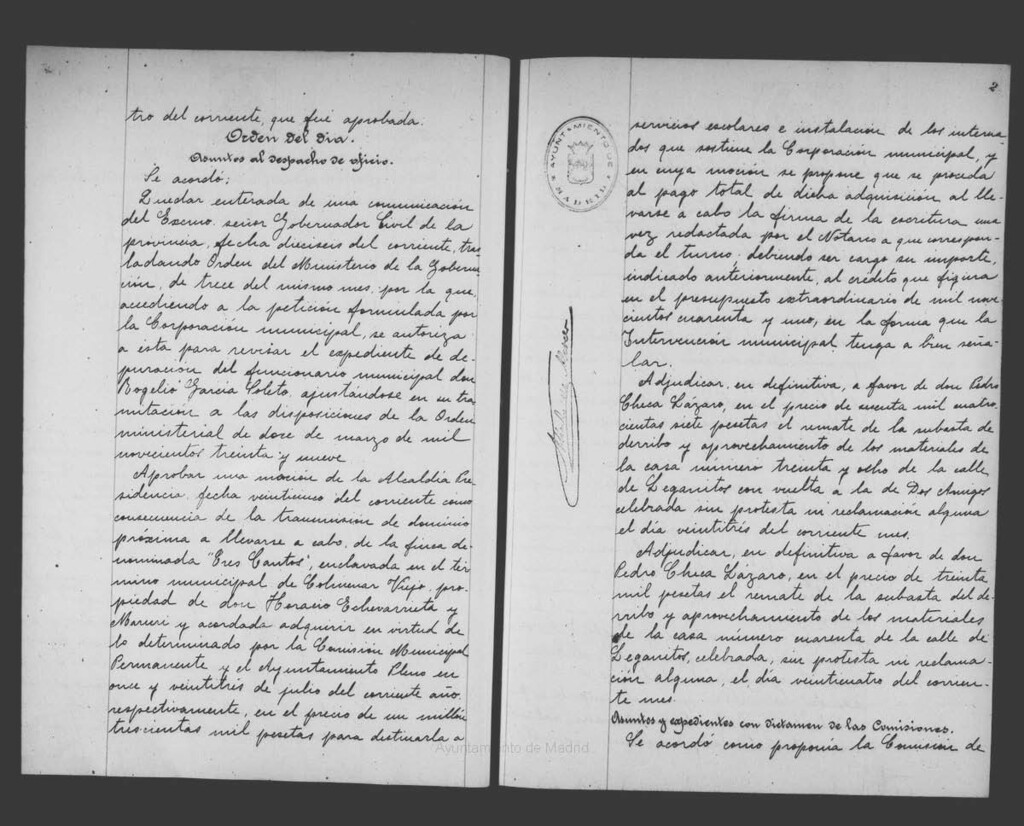 tro del corriente, que fué aprobada.
Orden del día.
Asuntos al despacho de oficio.
Se acordó:
Quedar enterada de una comunicación
del Excmo. señor Gobernador Civil de la
provincia, fecha dieciseis del corriente, tras-
ladando Orden del Ministerio de la Goberna-
ción, de trece del mismo mes, por la que,
accediendo a la petición formulada por
la Corporación municipal, se autoriza
a ésta para revisar el expediente de de-
puración del funcionario municipal don
Rogelio García Soleto, ajustándose en su tra-
mitación a las disposiciones de la Orden
ministerial de doce de marzo de mil
novecientos treinta y nueve
Aprobar una moción de la Alcaldía Pre-
sidencia, fecha veinticinco del corriente como
consecuencia de la transmisión de dominio
próxima a llevarse a cabo, de la finca de-
nominada "Tres Cantos", enclavada en el tér-
mino municipal de Colmenar Viejo, pro-
piedad de don Horacio Echevarrieta y
Maruri y acordada adquirir en virtud de
lo determinado por la Comisión Municipal
Permanente y el Ayuntamiento Pleno en
once y veintitrés de julio del corriente año,
respectivamente, en el precio de un millón
trescientas mil pesetas para destinarla a
2
AYUNTAMIENTO DE MADRID
servicios escolares e instalación de los interna-
dos que sostiene la Corporación municipal, y
en cuya moción se propone que se proceda
al pago total de dicha adquisición al lle-
varse a cabo la firma de la escritura una
vez redactada por el Notario a que correspon-
da el turno; debiendo ser cargo su importe,
indicado anteriormente, al crédito que figura
en el presupuesto extraordinario de mil nove-
cientos cuarenta y uno, en la forma que la
Intervención municipal tenga a bien seña-
lar.
Adjudicar, en definitiva, a favor de don Pedro
Checa Lázaro, en el precio de mil cuatro-
cientas siete pesetas el remate de la subasta de
derribo y aprovechamiento de los materiales de
la casa número treinta y ocho de la calle
de Leganitos con vuelta a la de Dos Amigos
celebrada sin protesta ni reclamación alguna
el día veintitrés del corriente mes.
Adjudicar, en definitiva a favor de don
Pedro Checa Lázaro, en el precio de treinta
mil pesetas el remate de la subasta del de-
rribo y aprovechamiento de los materiales
de la casa número cuarenta de la calle de
Leganitos, celebrada, sin protesta ni reclama-
ción alguna, el día veinticuatro del corrien-
te mes.
Asuntos y expedientes con dictamen de las Comisiones.
Se acordó como proponía la Comisión de
Ayuntamiento de Madrid